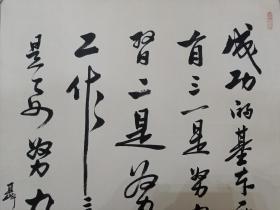 成功的基本
有三一是努
习二是努
工作三
是要努力